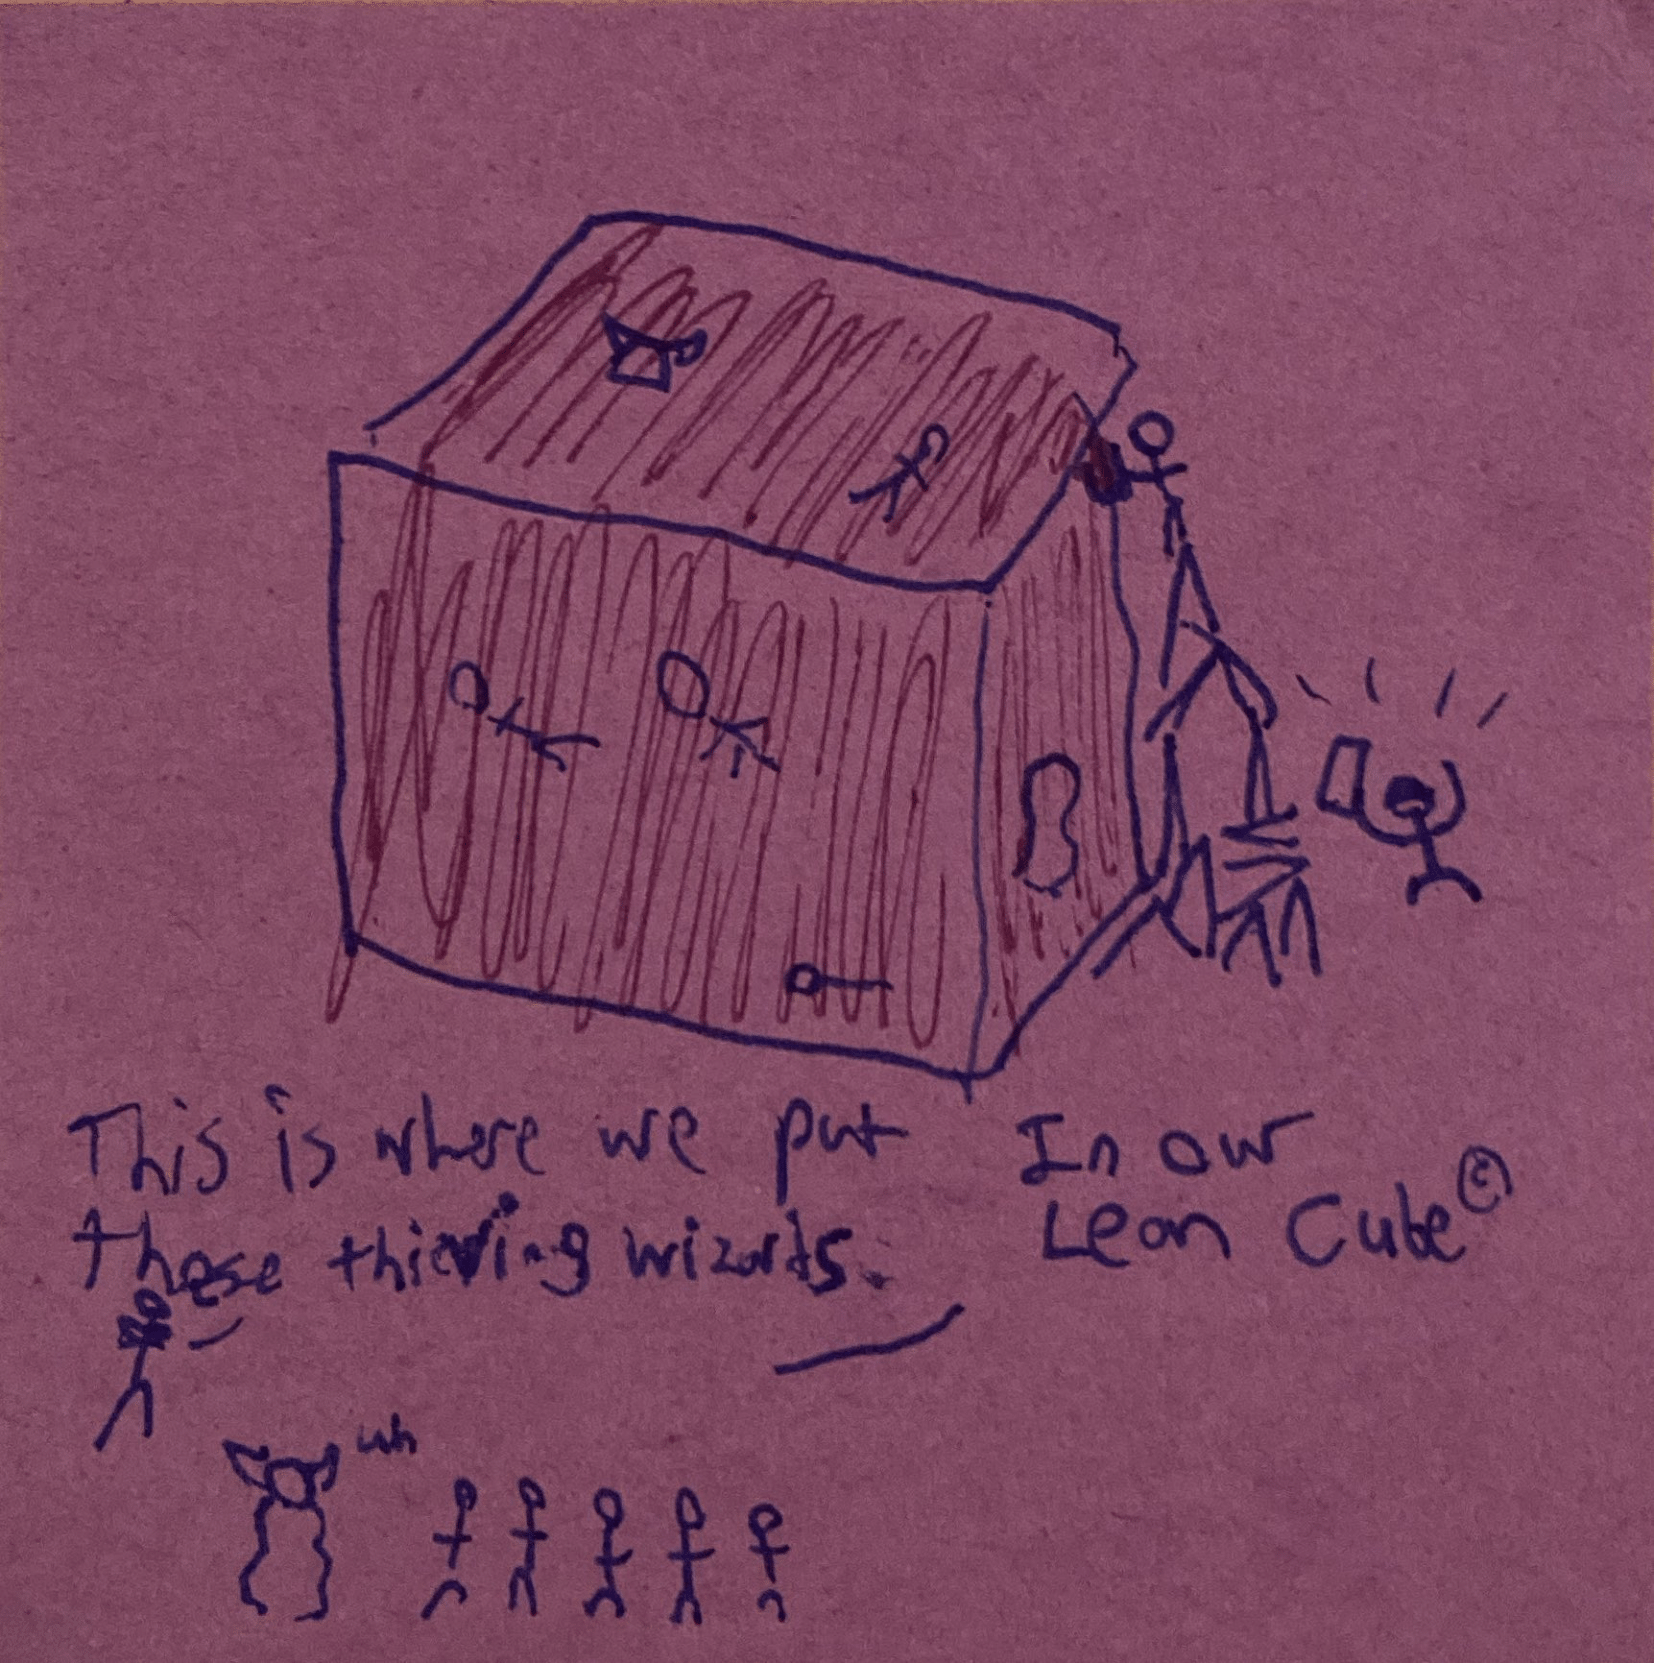 This is where we put
these thieving wizards.
In our
Lean Cube©
uh